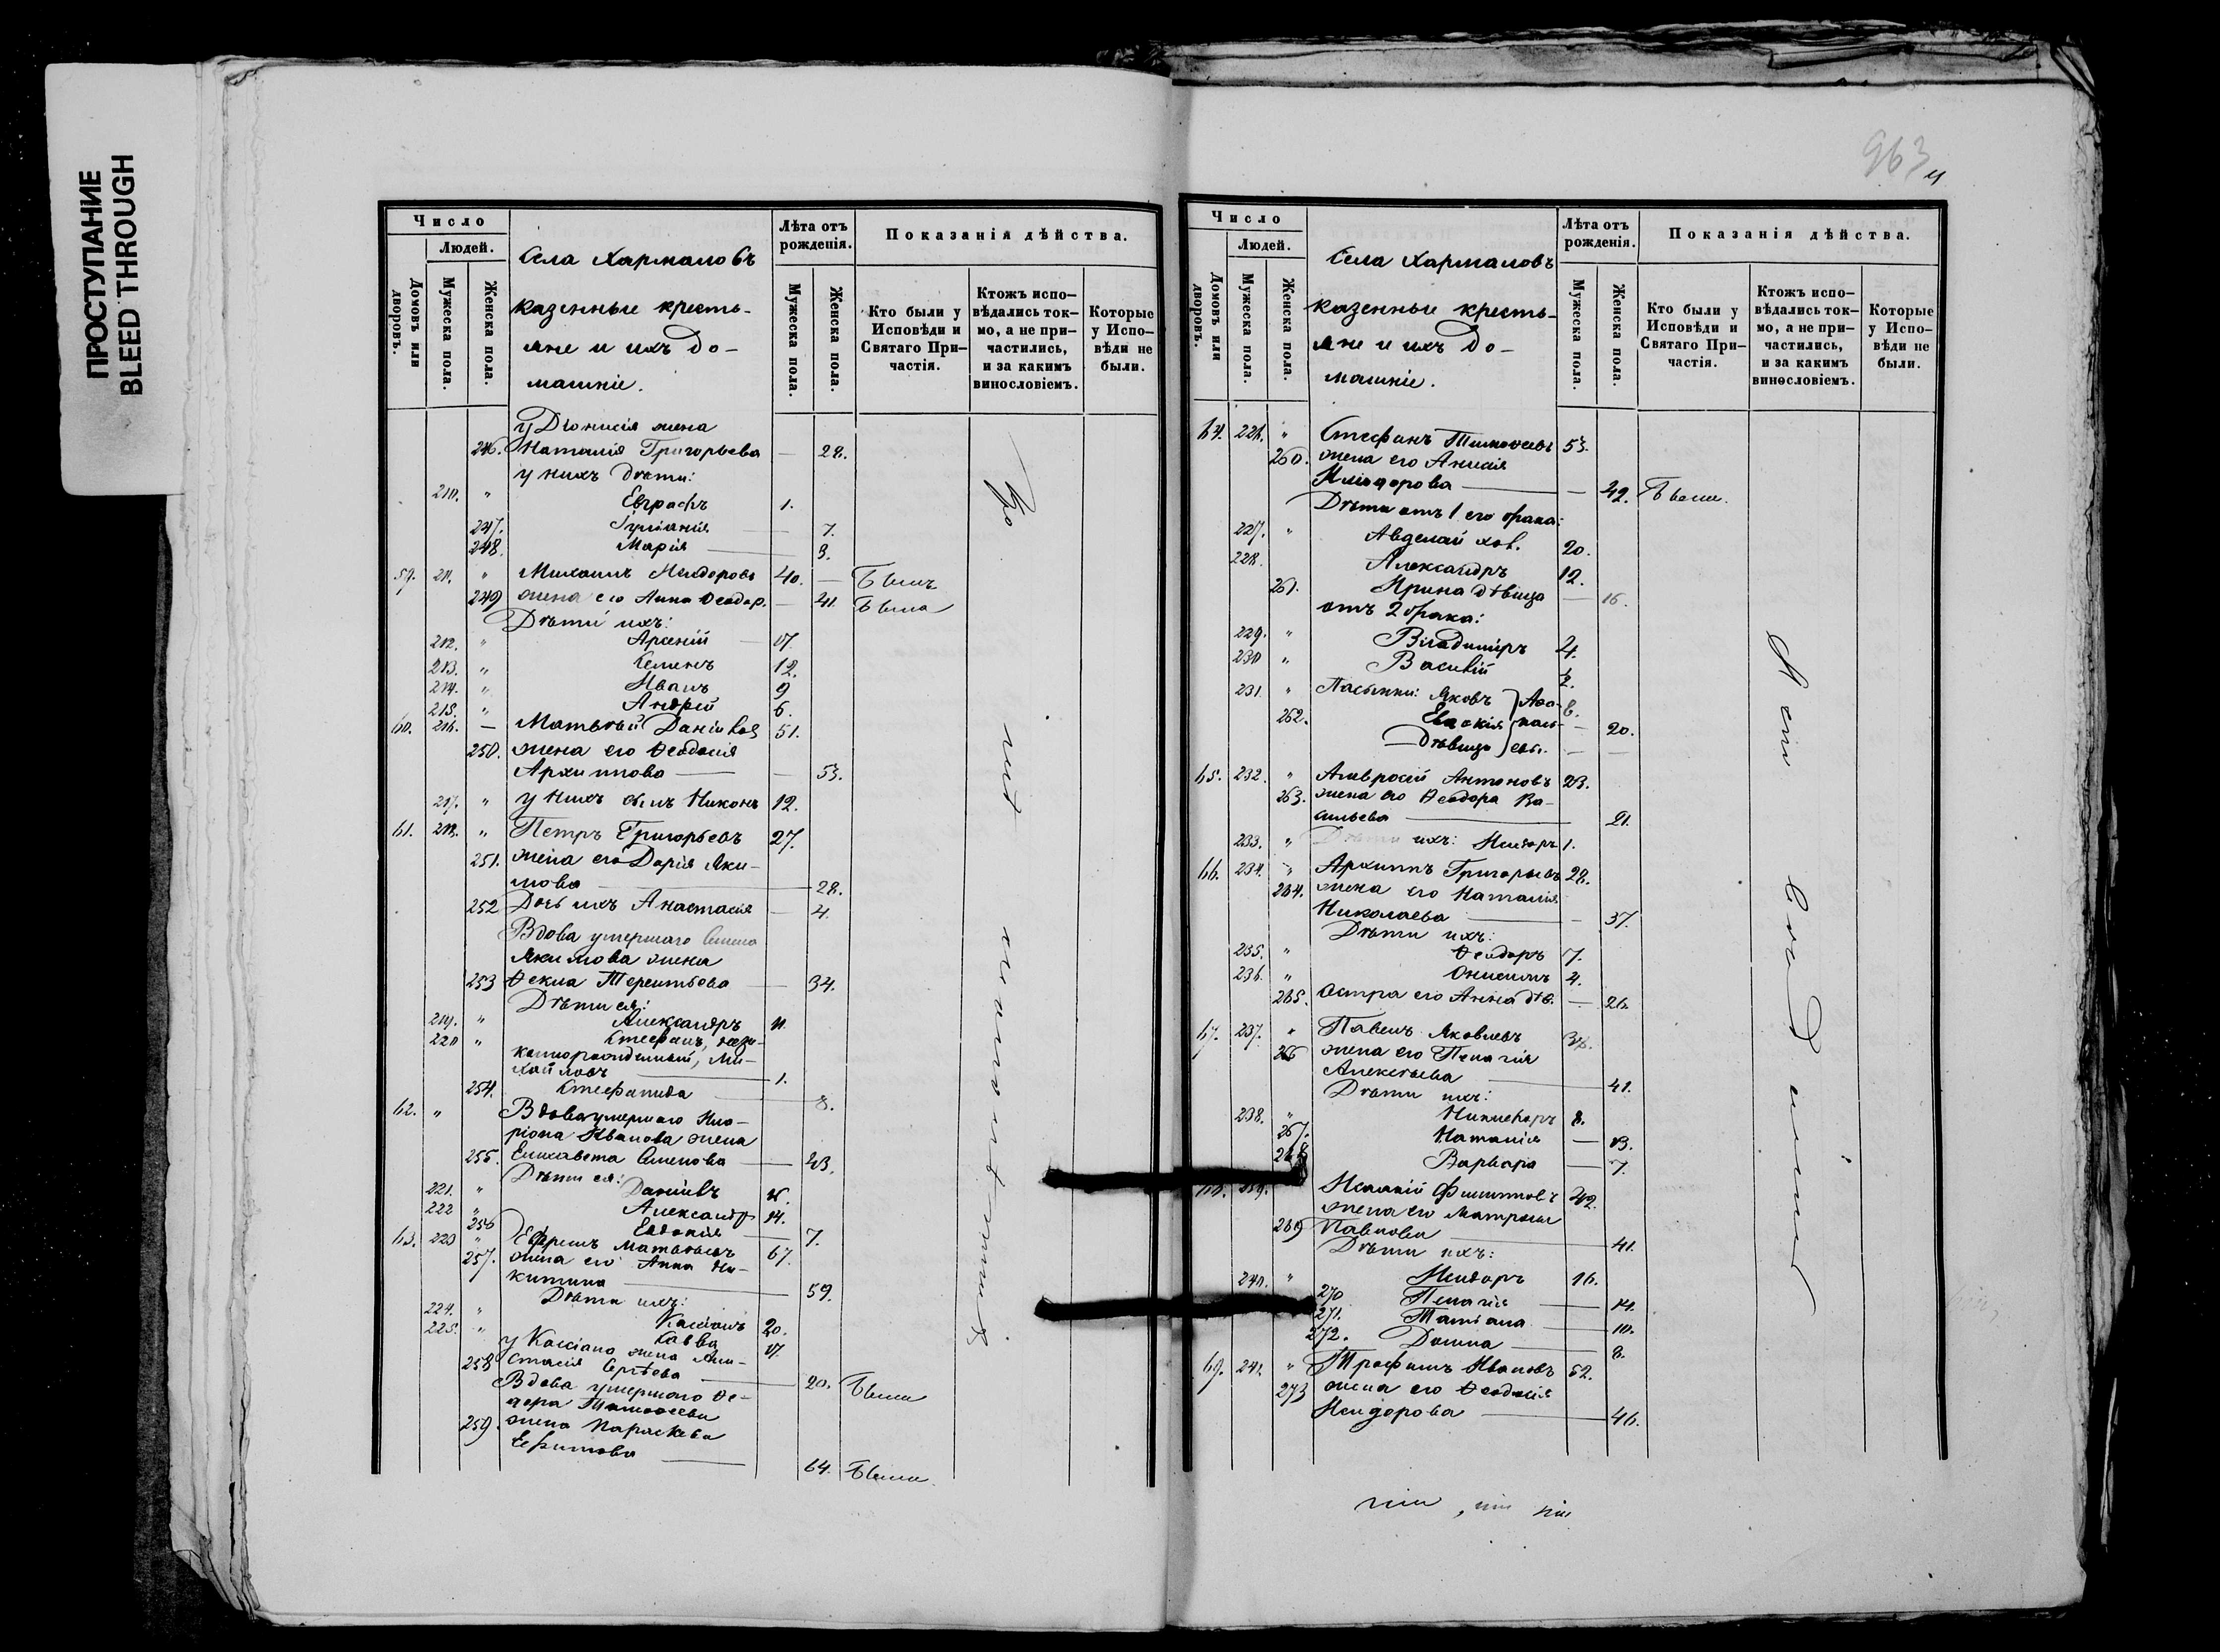 ПРОСТУПАНИЕ
BLEED THROUGH
Число
Людей.
Домовъ или дворовъ.
Мужеска пола.
Женска пола.
Села Хармаловъ
казенные кресть-
яне и ихъ до-
машніе.
Лѣта отъ рожденія.
Мужеска пола.
Женска пола.
Показанія дѣйства.
Кто были у Исповѣди и Святаго При-частія.
Ктожъ испо-вѣдались ток-мо, а не при-частились, и за какимъ винословіемъ.
Которые у Испо-вѣди не были.
у Діонисія жена
246. Наталія Григорьева — 28.
у нихъ дѣти:
210. " Евграфъ 1.
247. — 7.
248. Марія — 3.
59. 211. " Михаилъ Исидоровъ 40. — Былъ
249 жена его Анна Ѳеодор. — 41. Была
Дѣти ихъ:
212. " Арсеній 17.
213. " 12.
214. " Иванъ 9
215. " Андрей 6.
60. 216. — Матвѣй Даніиловъ 51.
250. жена его Ѳеодосія
Архипова — 53.
217. " у нихъ сынъ Никонъ 12.
61. 218. " Петръ Григорьевъ 27.
251. жена его Дарія Яки-
мова — 28.
252 Дочь ихъ Анастасія — 4.
Вдова умершаго
Якимова жена
253 Ѳекла Терентьева — 34.
Дѣти ея:
219. " Александръ 11.
220 " Стефанъ, неза-
коннорожденный, Ми-
хайловъ — 1.
254. Стефанида — 8.
62. " Вдова умершаго Ила-
ріона Иванова жена
255. Елисавета Семенова — 43.
Дѣти ея:
221. " Даніилъ
222 " Александръ 14.
256 Евдокія — 7.
63. 223 " Ефремъ Матвѣевъ 67.
257. жена его Анна Ни-
китина — 59.
Дѣти ихъ:
224. " Кассіанъ 20.
225. " Савва 17.
у Кассіана жена Ана-
258 стасія Сергѣева — 20. Были
Вдова умершаго Ѳе-
дора Тимоѳеева
259. жена Параскева
Ефимова — 64. Была.
963
Число
Людей.
Домовъ или дворовъ.
Мужеска пола.
Женска пола.
Села Хармаловъ
казенные кресть-
яне и ихъ до-
машніе.
Лѣта отъ рожденія.
Мужеска пола.
Женска пола.
Показанія дѣйства.
Кто были у Исповѣди и Святаго При-частія.
Ктожъ испо-вѣдались ток-мо, а не при-частились, и за какимъ винословіемъ.
Которые у Испо-вѣди не были.
64. 226. " Стефанъ Тимоѳеевъ 53.
260. жена его Анисія
Исидорова — 42. Были.
Дѣти отъ 1 его брака:
227. " Авделай хол. 20.
228. Александръ 12.
261. Ирина дѣвица — 16.
отъ 2 брака:
229. " Владимиръ 4.
230 " Василій
231. " Пасынки: Яковъ
262. Евдокія — 20.
Дѣвица
65. 232. " Амвросій Антоновъ 23.
263. жена его Ѳеодора Ва-
сильева — 21.
233. " Дѣти ихъ: Исидоръ 1.
66. 234. " Архиппъ Григорьевъ 28.
264. жена его Наталія
Николаева — 37.
Дѣти ихъ:
235. " Ѳеодоръ 7.
236. " Онисимъ 4.
265. Сестра его Анна дѣв. — 26.
67. 237. " Павелъ Яковлевъ
266 жена его Пелагія
Алексѣева — 41.
Дѣти ихъ:
238. " Никифоръ 8.
267. Наталія — 13.
268 Варвара — 7.
68. 239. Исаакій Филипповъ 42.
жена его Матрона
269 Павлова — 41.
Дѣти ихъ:
240. " Исидоръ 16.
270 Пелагія — 14.
271. Татіана — 10.
272. Домна — 8.
69. 241. " Трофимъ Ивановъ 52.
273 жена его Ѳеодосія
Исидорова — 46.